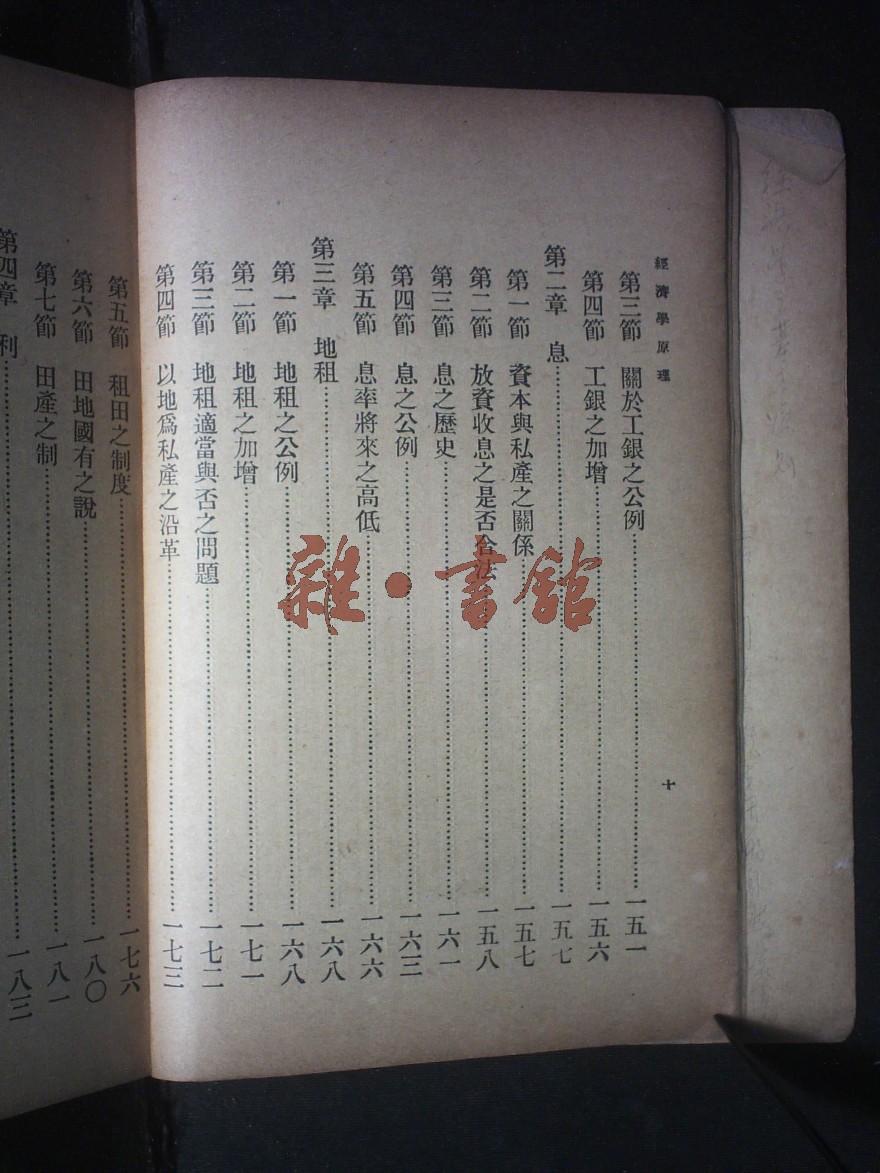 經濟學原理
十
第三節 關於工銀之公例 一五一
第四節 工銀之加增 一五六
第二章 息 一五七
第一節 資本與私產之關係 一五七
第二節 放資收息之是否合法 一五八
第三節 息之歷史 一六一
第四節 息之公例 一六三
第五節 息率將來之高低 一六六
第三章 地租 一六八
第一節 地租之公例 一六八
第二節 地租之加增 一七一
第三節 地租適當與否之問題 一七二
第四節 以地爲私產之沿革 一七三
第五節 租田之制度 一七六
第六節 田地國有之說 一八〇
第七節 田產之制 一八一
第四章 利 一八三
雜·書館